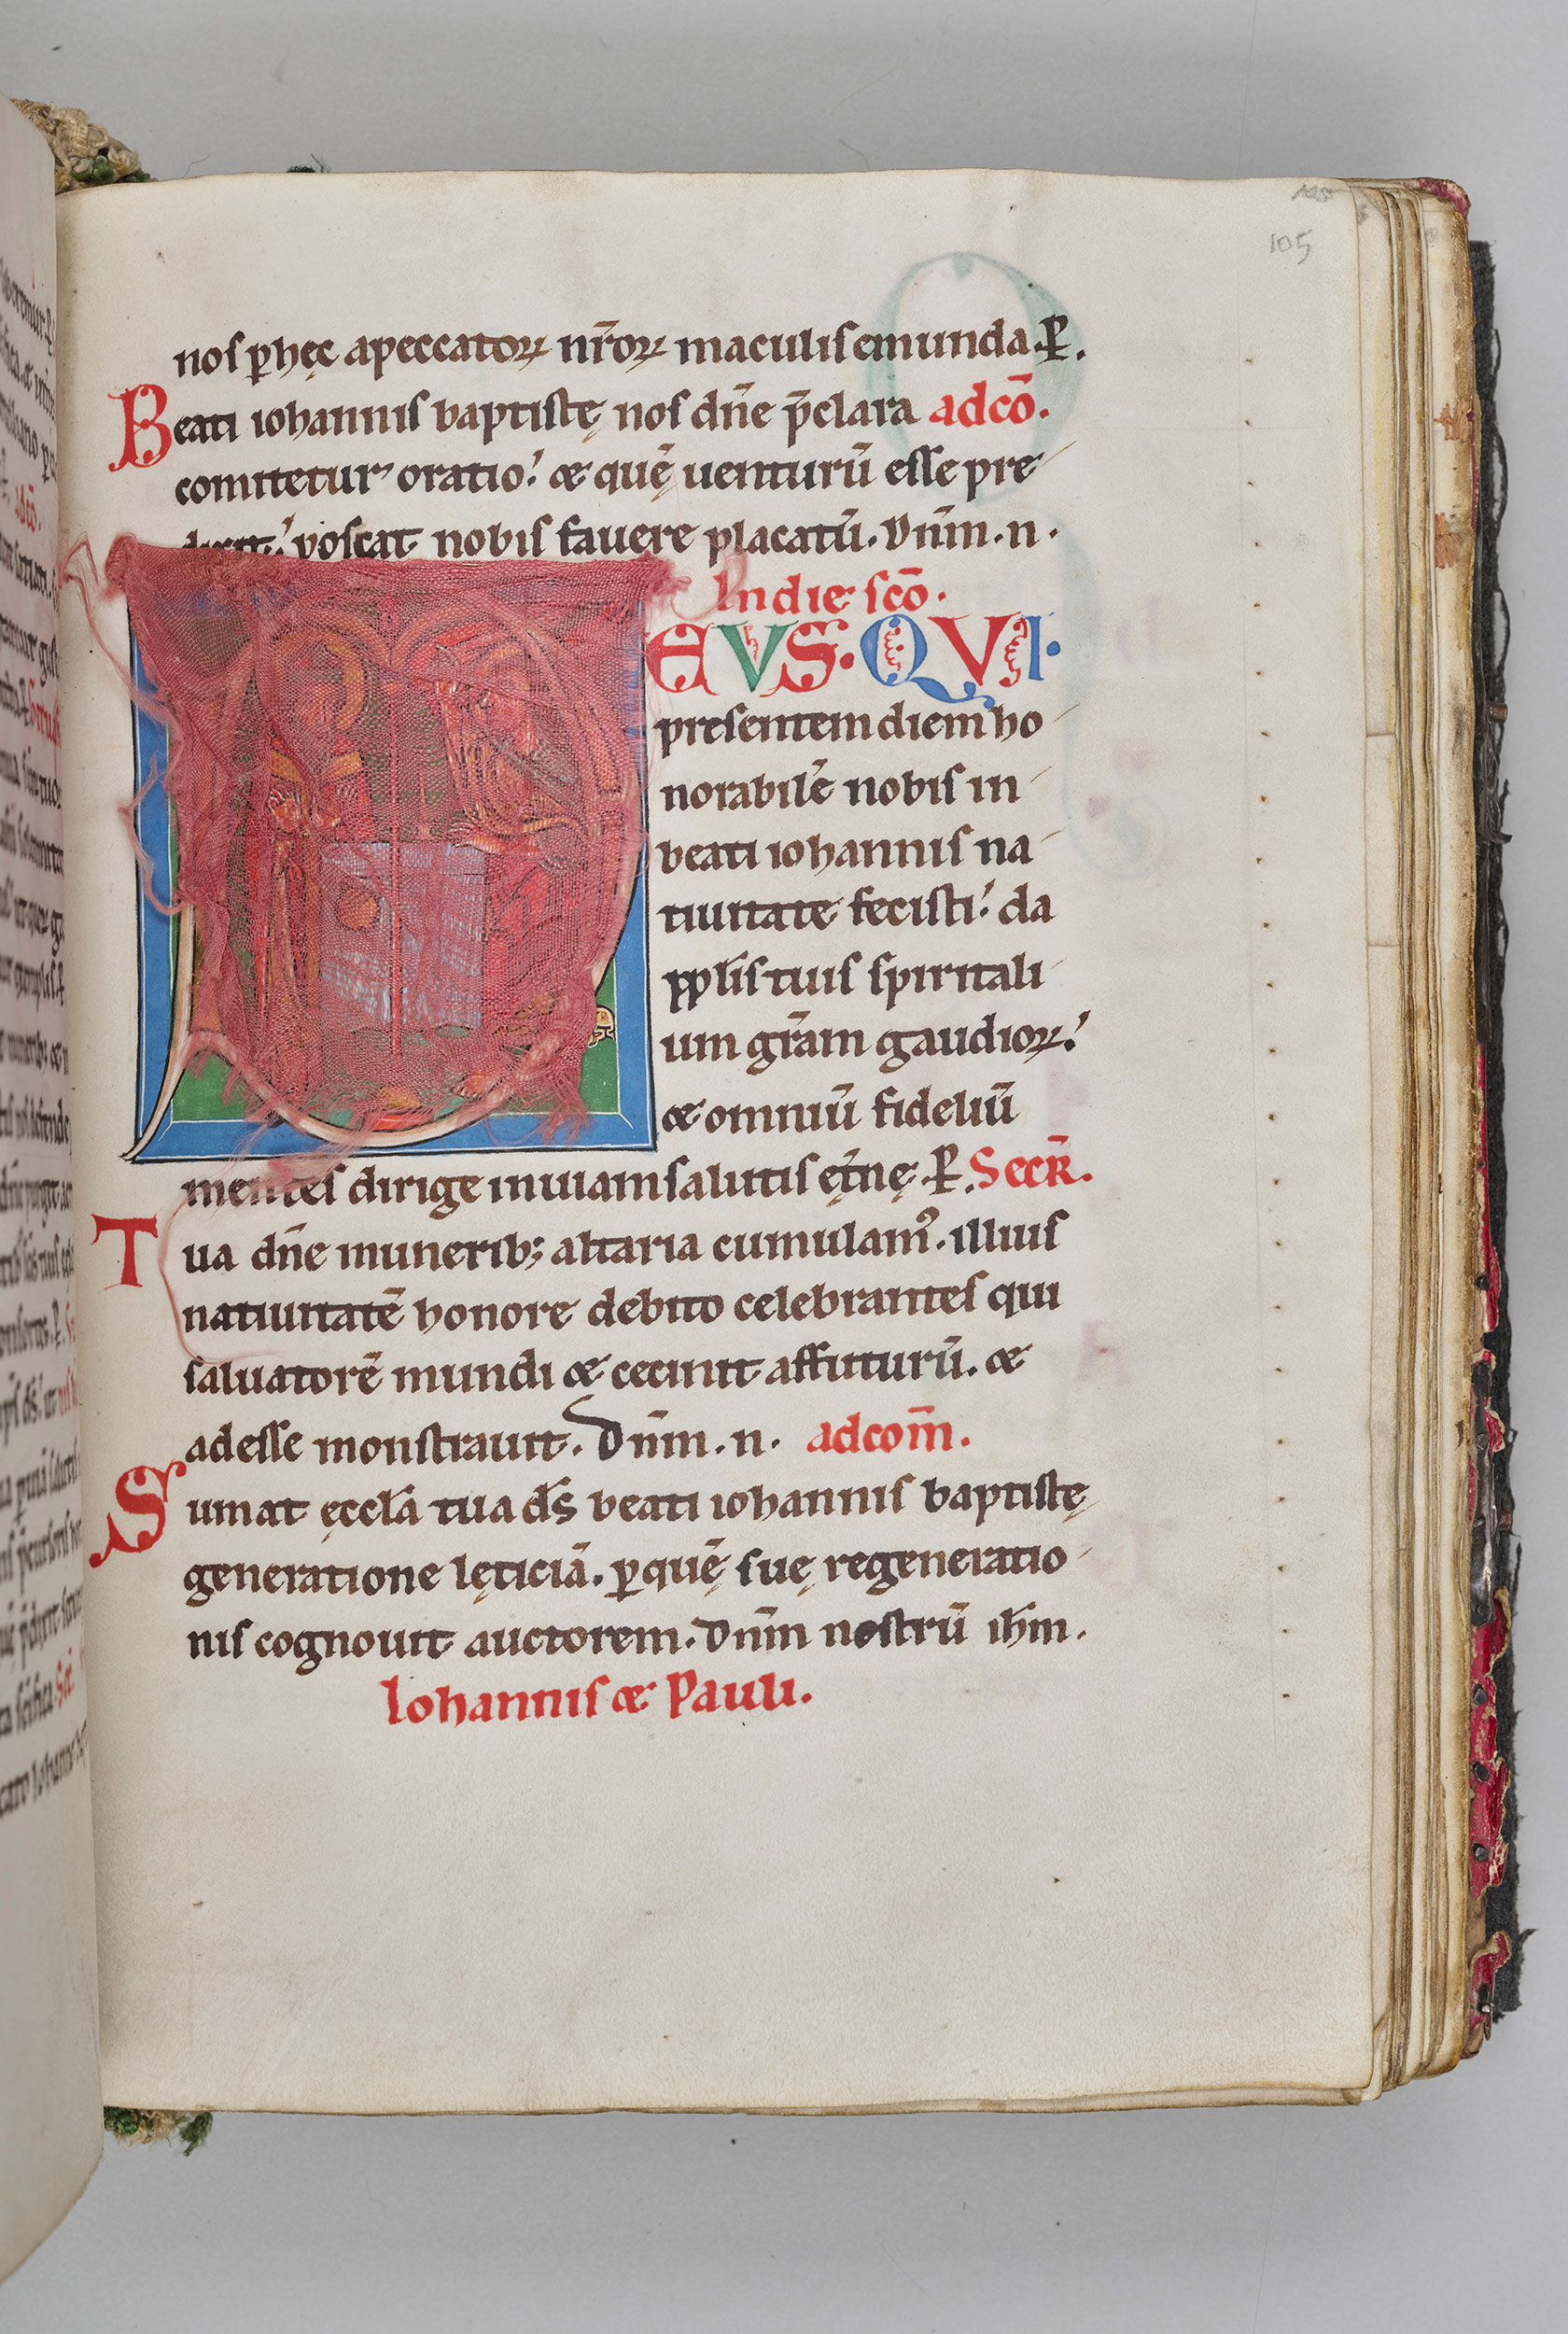 105
noſ p̄ hęc apeccatoꝝ nr̄oꝝ maculiſ emunda. P̄.
Beati iohanniſ baptiſtę noſ dn̄e p̄clara adcō.
comitetur oratio. & quē uenturū eſſe pre
dixit. poſcat nobiſ fauere placatū. Dnm̄. n.
In die ſcō.
EVS. QVI.
preſentem diem ho
norabilē nobiſ in
beati iohanniſ na
tiuitate feciſti. da
pplıſ̄ tuiſ ſpiritali
um gr̄am gaudioꝝ.
& omniū fideliū
menteſ dirige in uiam ſalutiſ ęt̄nę. P̄. Secr̄.
Tua dn̄e munerib; altaria cumulamꝰ. illiuſ
natiuitatē honore debito celebranteſ qui
ſaluatorē mundi & cecinit affuturū. &
adeſſe monſtrauit. Dnm̄. n. adcom̄.
Sumat ęccl̄a tua dſ̄ beati iohanniſ baptiſtę
generatione lęticiā. p̄ quē ſuę regeneratio
niſ cognouit auctorem. Dnm̄ noſtrū ih̄m.
Iohanniſ & Pauli.